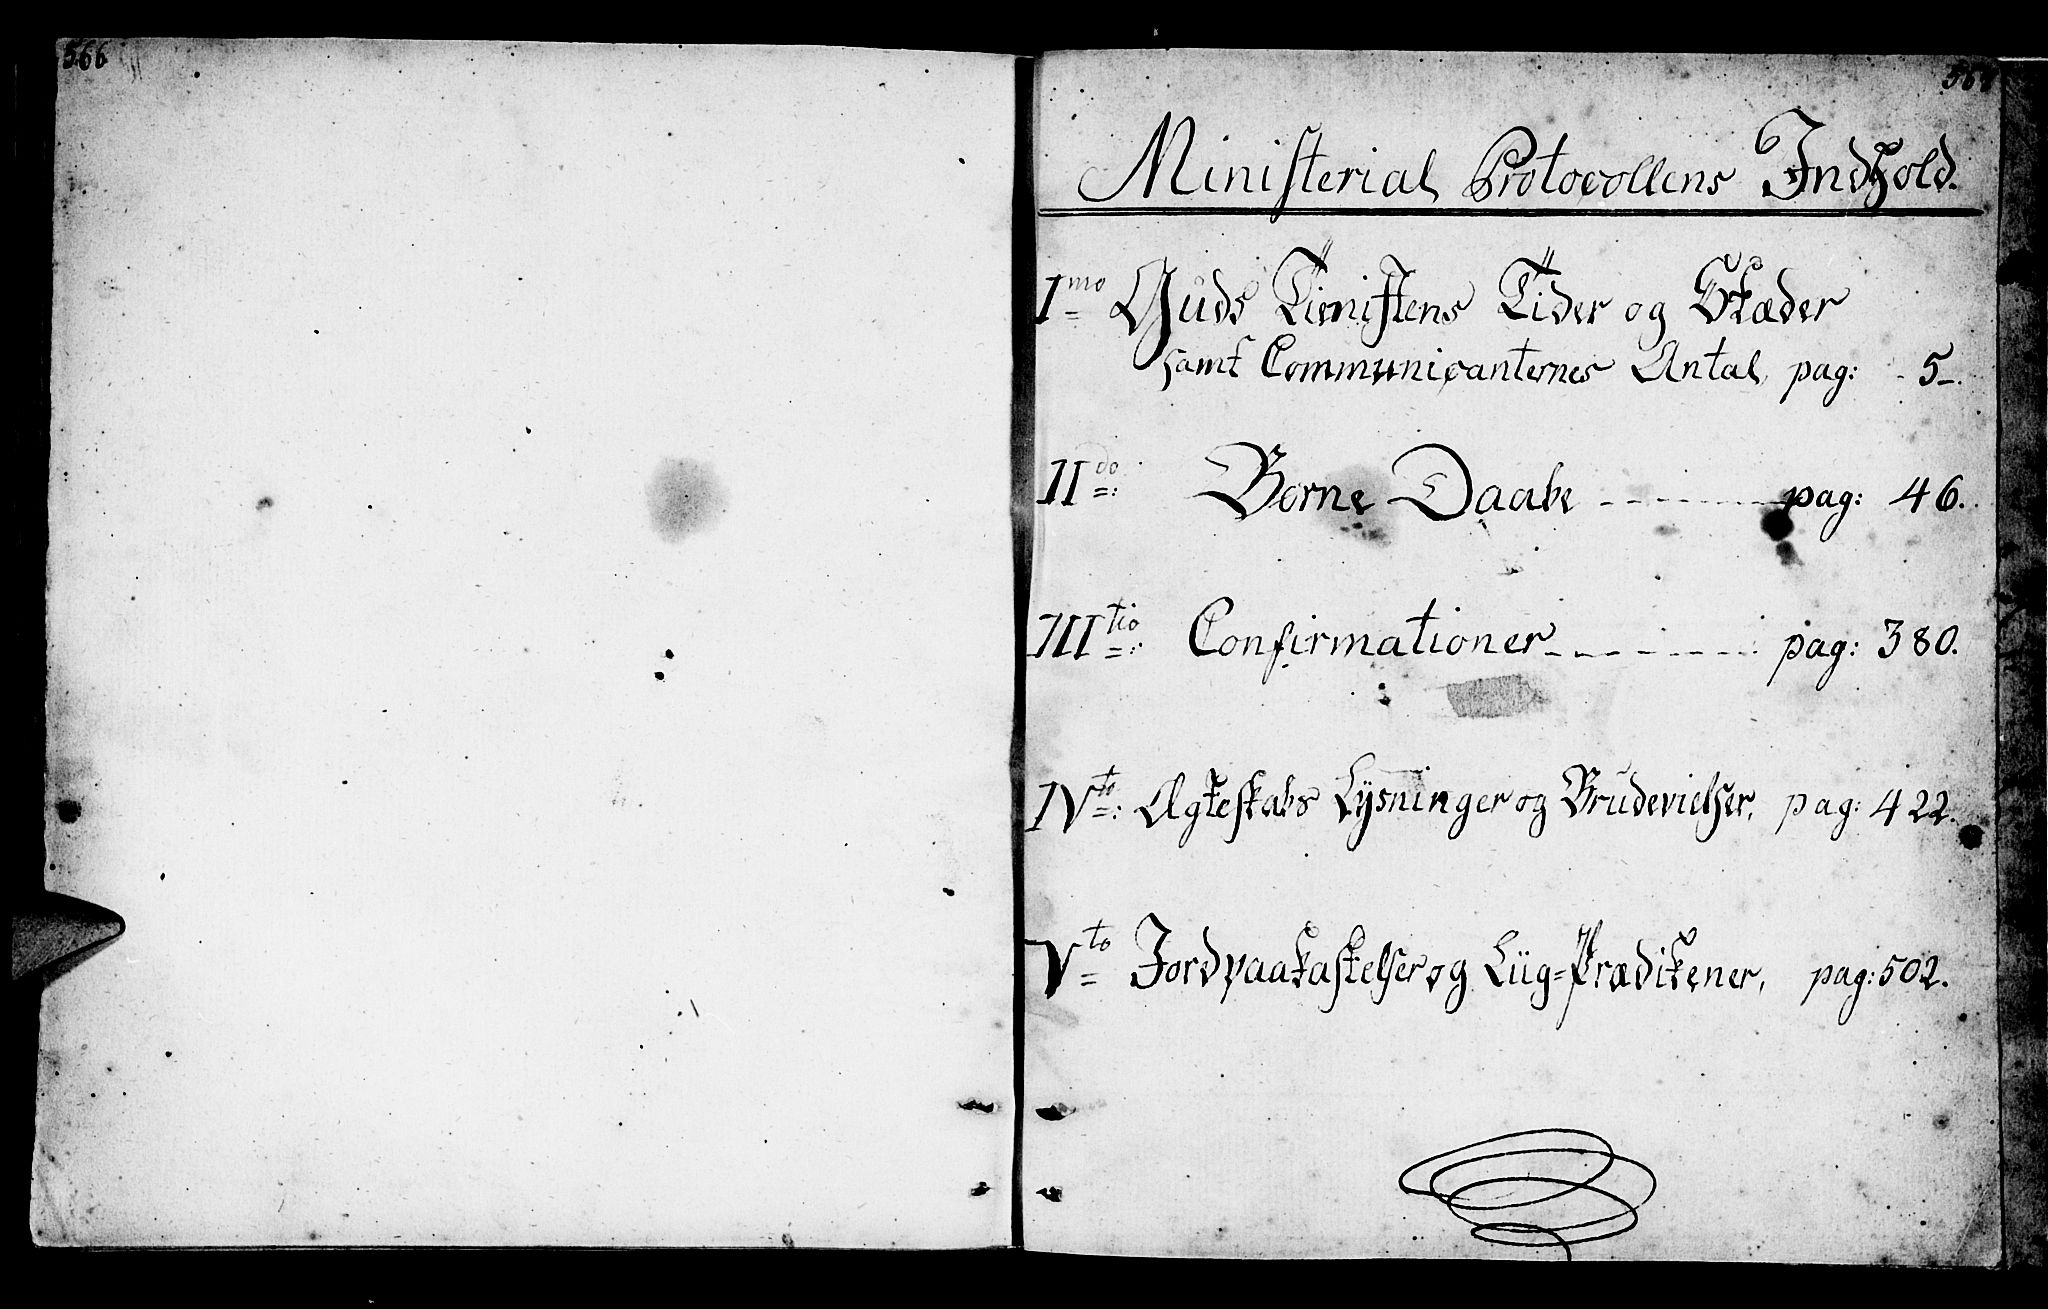 566
567
Ministerial Protocollens Indhold.
I mo Guds Tienistens Tider og Stæder
samt Communicanternes Antal, pag: 5.
II do: Børne Daabe - - - - - pag: 46.
III tio: Confirmationer - - - - - pag: 380.
IV to: Ægteskabs Lysninger og Brudevielser, pag: 422.
V to Jordpaakastelser og Liig-Prædikener, pag: 502.